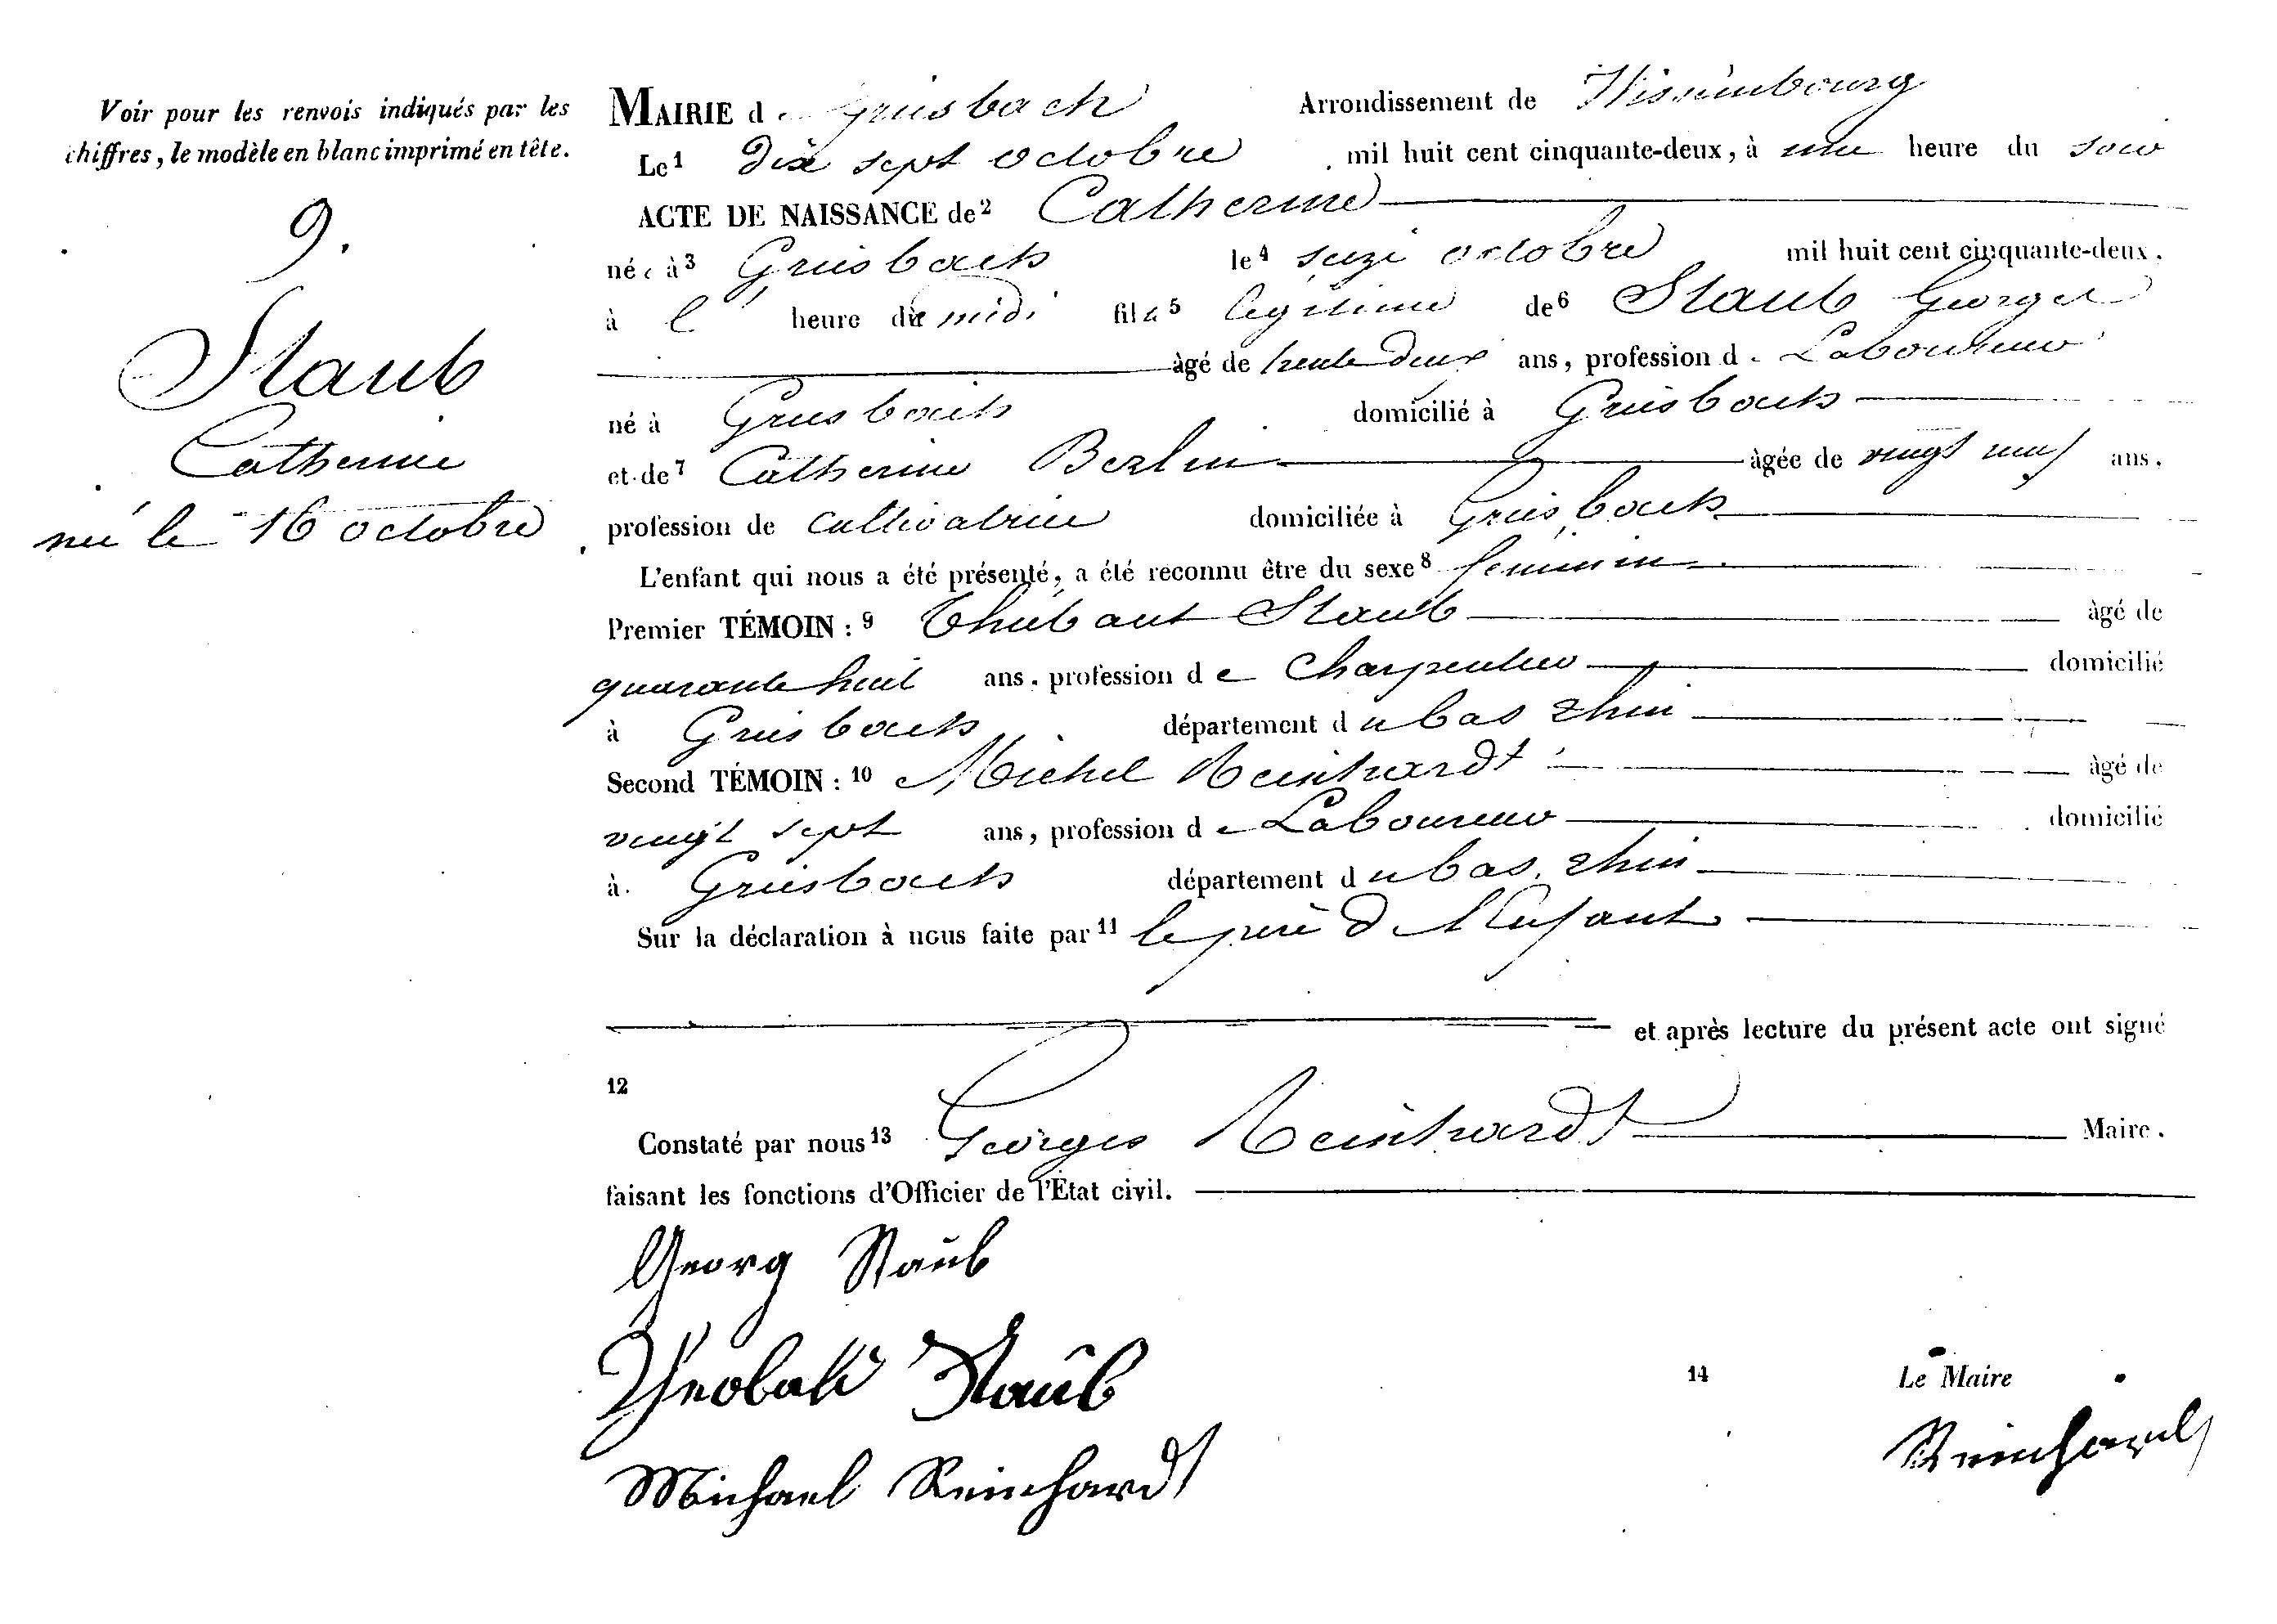 Voir pour les renvois indiqués par les
chiffres, le modèle en blanc imprimé en tête.
9.
Staub
Catherine
née le 16 octobre
MAIRIE de Griesbach Arrondissement de Wissembourg
Le 1 dix sept octobre mil huit cent cinquante-deux, à une heure du soir
ACTE DE NAISSANCE de 2 Catherine
née à 3 Griesbach le 4 seize octobre mil huit cent cinquante-deux.
à l' heure de midi fille 5 légitime de 6 Staub Georges
âgé de trente deux ans, profession de Laboureur
né à Griesbach domicilié à Griesbach
et de 7 Catherine Berlin âgée de vingt neuf ans.
profession de cultivatrice domiciliée à Griesbach
L'enfant qui nous a été présenté, a été reconnu être du sexe 8 féminin
Premier TÉMOIN : 9 Thiébaut Staub âgé de
quarante huit ans, profession de Charpentier domicilié
à Griesbach département du bas rhin
Second TÉMOIN : 10 Michel Reinhardt âgé de
vingt sept ans, profession de Laboureur domicilié
à Griesbach département du bas rhin
Sur la déclaration à nous faite par 11 le père de l'Enfant
et après lecture du présent acte ont signé
12
Constaté par nous 13 Georges Reinhardt Maire.
faisant les fonctions d'Officier de l'État civil.
Georg Staub
Theobald Staub
14 Le Maire
Michael Reinhardt Reinhardt